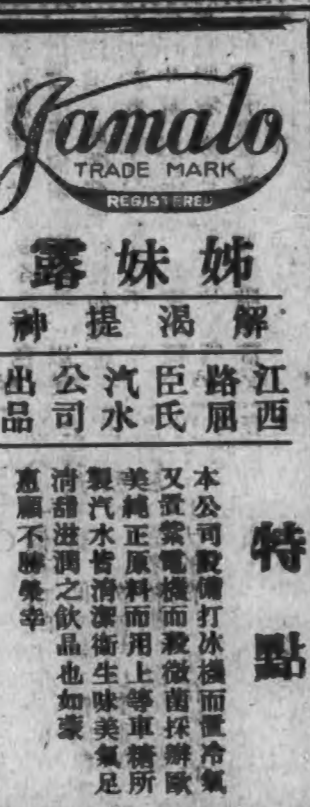 Jamalo
TRADE MARK
REGISTERED
姊妹露
解渴提神
江西路屈臣氏汽水公司出品
特點
本公司設備打冰機而置冷氣
又置紫電機而殺微菌採辦歐
美純正原料而用上等車糖所
製汽水皆清潔衛生味美氣足
清甜滋潤之飲品也如蒙
惠顧不勝榮幸